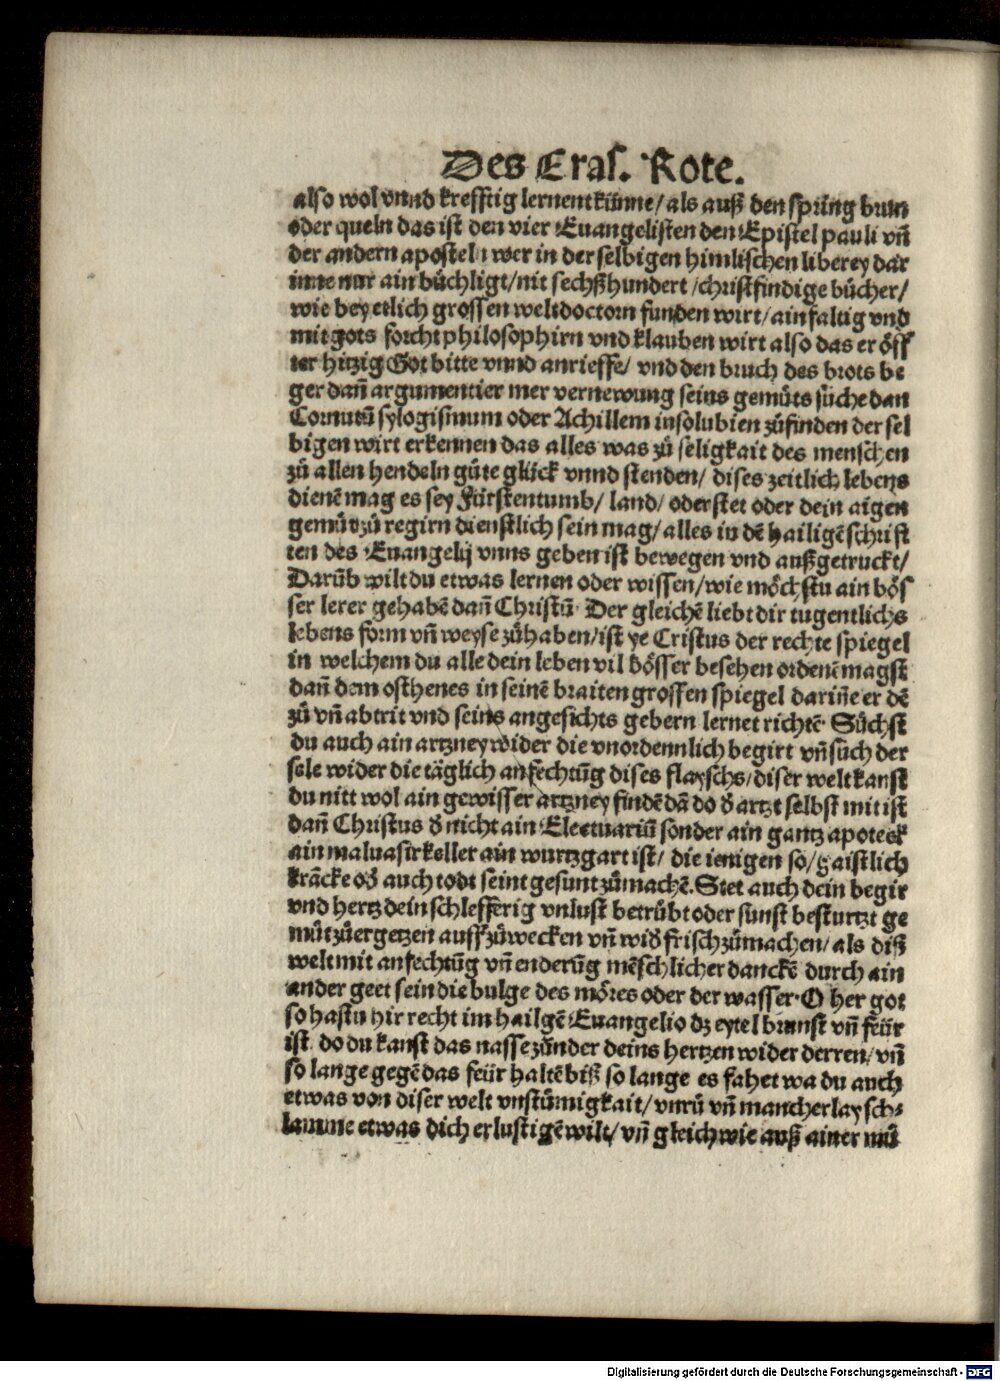 Des Eras. Rote.
also wol vnnd krefftig lernent künne/ als auß den spring brun
oder queln das ist den vier Euangelisten den Epistel pauli vñ
der andern aposteln wer in der selbigen himlischen liberey dar
inne nur ain büchligt/nit sechßhundert /christfindige bücher/
wie bey etlich grossen weltdoctorn funden wirt/ ainfaltig vnd
mit gots forcht philosophirn vnd klauben wirt also das er öff
ter hitzig Got bitte vnnd anrieffe/ vnd den bruch des brots be
ger dañ argumentier mer vernewung seins gemüts süche dan
Cornutū sylogismum oder Achillem insolubien zůfinden der sel
bigen wirt erkennen das alles was zů seligkait des menschen
zů allen hendeln gůte glück vnnd stenden/ dises zeitlich lebens
dienē mag es sey Fürstentumb/ land/ oder stet oder dein aigen
gemüt zů regirn dienstlich sein mag/ alles in dē hailigē schrift
ten des Euangelij vnns geben ist bewegen vnd außgetruckt/
Darūb wilt du etwas lernen oder wissen/wie möchstu ain bös
ser lerer gehabē dañ Christū· Der gleichē liebt dir tugentlichs
lebens form vñ weyse zůhaben/ist ye Cristus der rechte spiegel
in welchem du alle dein leben vil bösser besehen ordenē magst
dañ dem osthenes in seinē braiten grossen spiegel dariñe er dē
zů vñ abtrit vnd seins angesichts gebern lernet richtē· Sůchst
du auch ain artzney wider die vnordennlich begirt vñ such der
sele wider die täglich anfechtūg dises flayschs/ diser welt kanst
du nitt wol ain gewisser artzney findē dā do ð artzt selbst mit ist
dañ Christus ð nicht ain Electuariū sonder ain gantz apoteck
ain maluasirkeller ain wurtzgart ist/ die ienigen so/ gaistlich
krācke oð auch todt seint gesunt zůmachē. Stet auch dein begir
vnd hertz dein schlefferig vnlust betrübt oder sunst besturtzt ge
můt zůergetzen auffzůwecken vñ wið frisch zůmachen/ als diß
welt mit anfechtūg vñ enderūg mēschlicher danckē durch ain
ander geet sein die bulge des möres oder der wasser· O her got
so hastu hir recht im hailgē Euangelio dz eytel brunst vñ feür
ist do du kanst das nasse zünder deins hertzen wider derren/ vñ
so lange gegē das feür haltē biß so lange es fahet wa du auch
etwas von diser welt vnstümigkait/ vnrů vñ mancherlay sch⸗
lamme etwas dich erlustigē wilt/ vñ gleich wie auß ainer mü
Digitalisierung gefördert durch die Deutsche Forschungsgemeinschaft - DFG